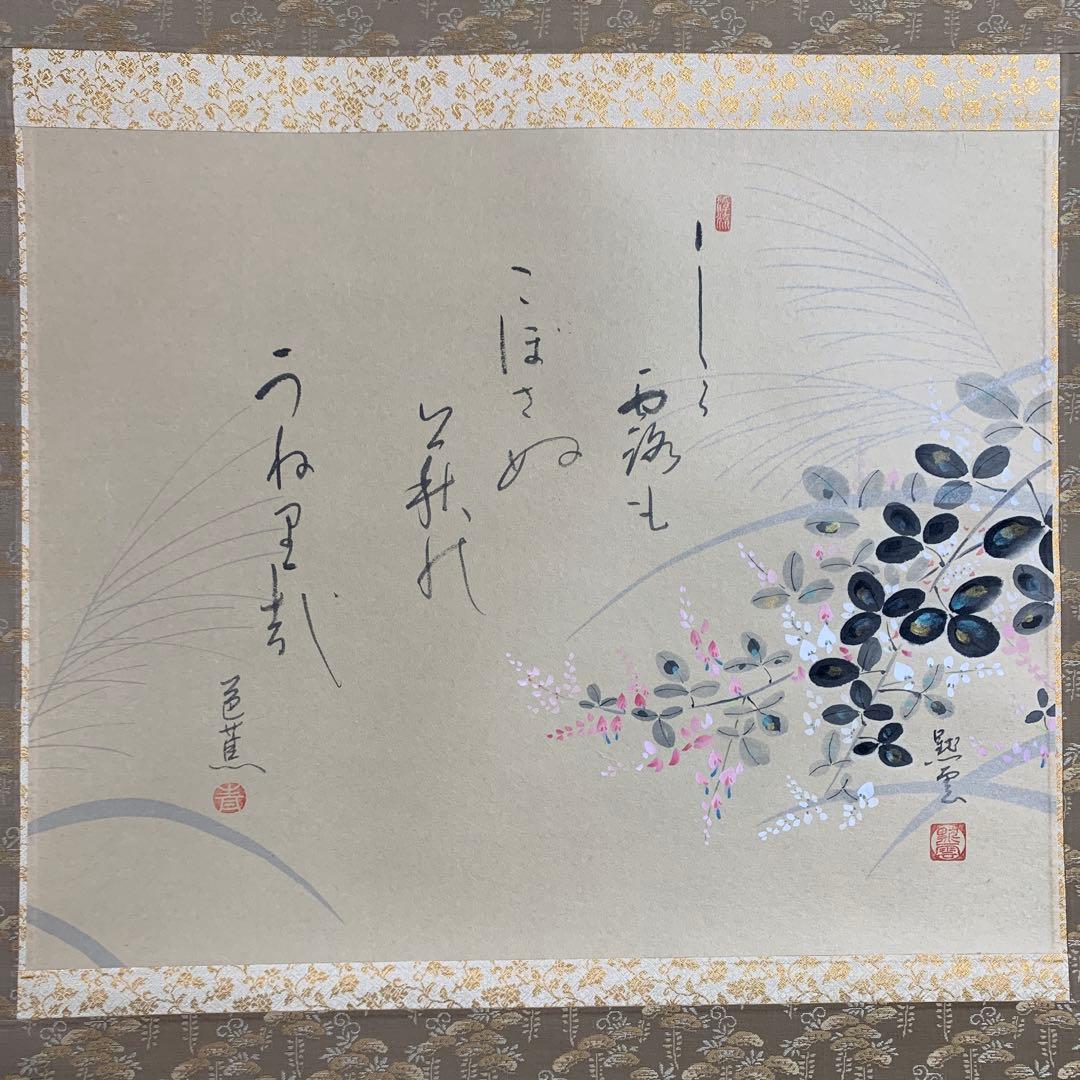 しら
露も
こぼさぬ
萩の
うね里哉
芭蕉